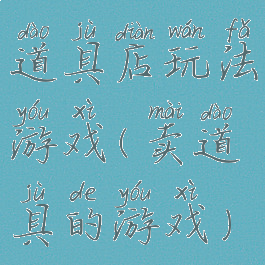 dào jù diàn wán fǎ
道具店玩法
yóu xì mài dào
游戏(卖道
jù de yóu xì
具的游戏)